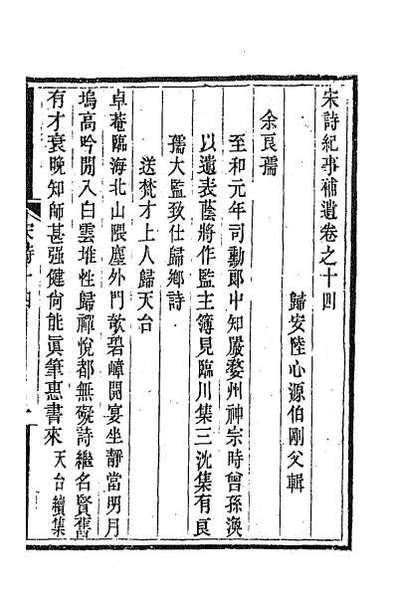 宋詩紀事補遺卷之十四
歸安陸心源伯剛父輯
余良孺
至和元年司勳郎中知嚴婺州神宗時曾孫渙
以遺表蔭將作監主簿見臨川集三沈集有良
孺大監致仕歸鄉詩
送梵才上人歸天台
卓菴臨海北山隈塵外門欹碧嶂開宴坐靜當明月
塢高吟閒入白雲堆性歸禪悅都無礙詩繼名賢舊
有才衰晚知師甚强健尚能眞筆惠書來 天台續集